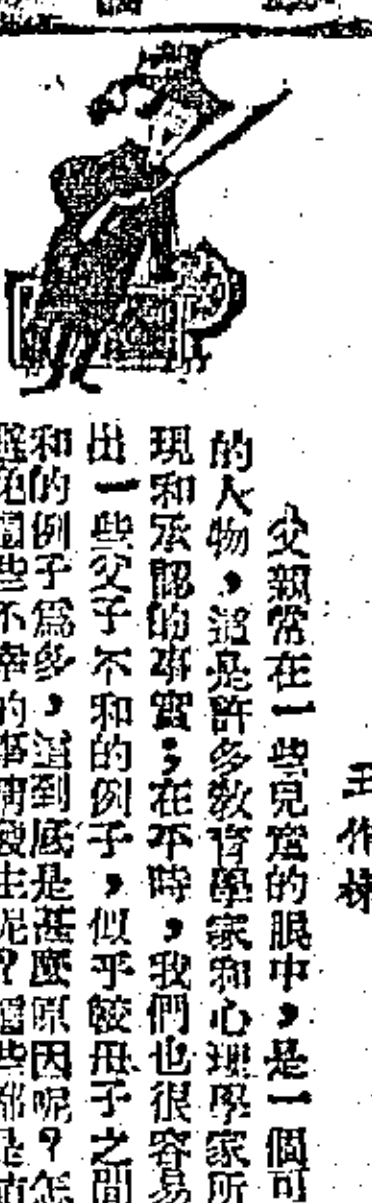 王作
父親常在一些兒童的眼中，是一個可
的人物，這是許多教育學家和心理學家所
現和承認的事實；在平時，我們也很容易
出一些父子不和的例子，似乎較母子之間
和的例子為多，這到底是甚麼原因呢？怎
避免這些不幸的事情發生呢？這些都是